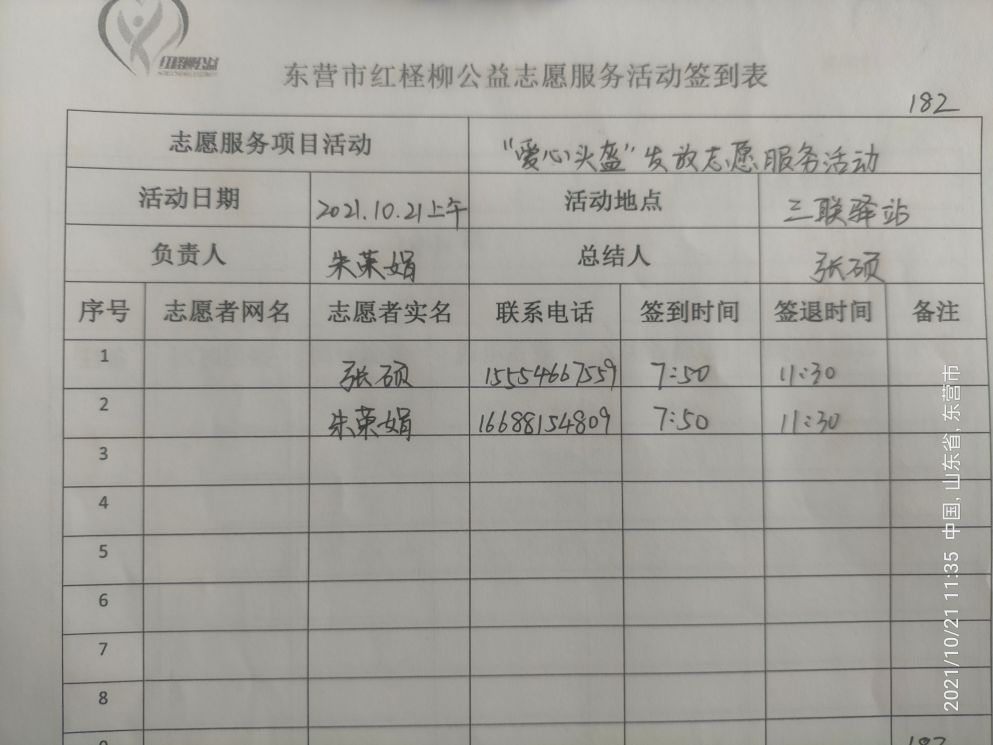 红柽柳公益
东营市红柽柳公益志愿服务活动签到表
182
志愿服务项目活动 "爱心头盔"发放志愿服务活动
活动日期 2021.10.21上午 活动地点 三联驿站
负责人 朱荣娟 总结人 张硕
序号 志愿者网名 志愿者实名 联系电话 签到时间 签退时间 备注
1 张硕 15554667559 7:50 11:30
2 朱荣娟 16688154809 7:50 11:30
3
4
5
6
7
8
9
182
2021/10/21 11:35 中国, 山东省, 东营市